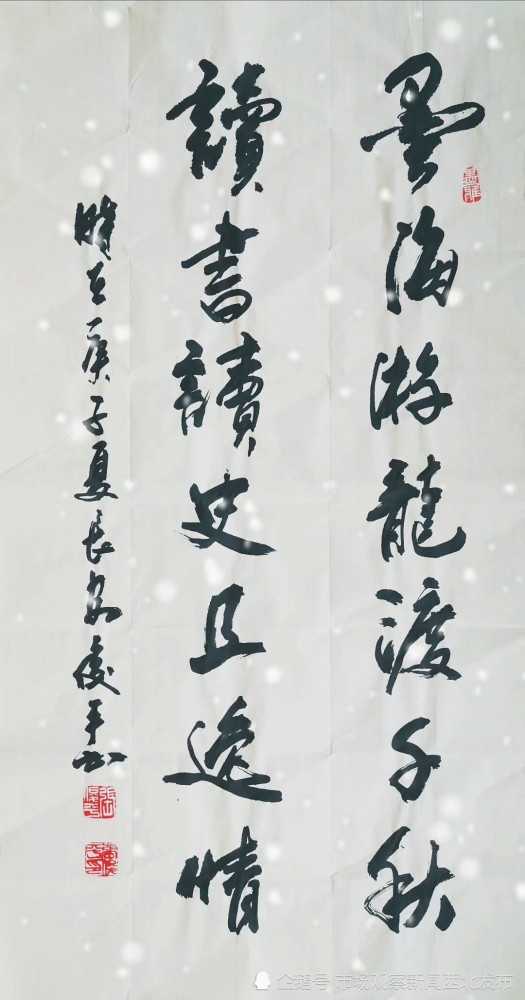 墨海游龍渡千秋
讀書讀史且逸情
時在庚子夏長安俊平书
企鹅号 市场观察新闻西北发布